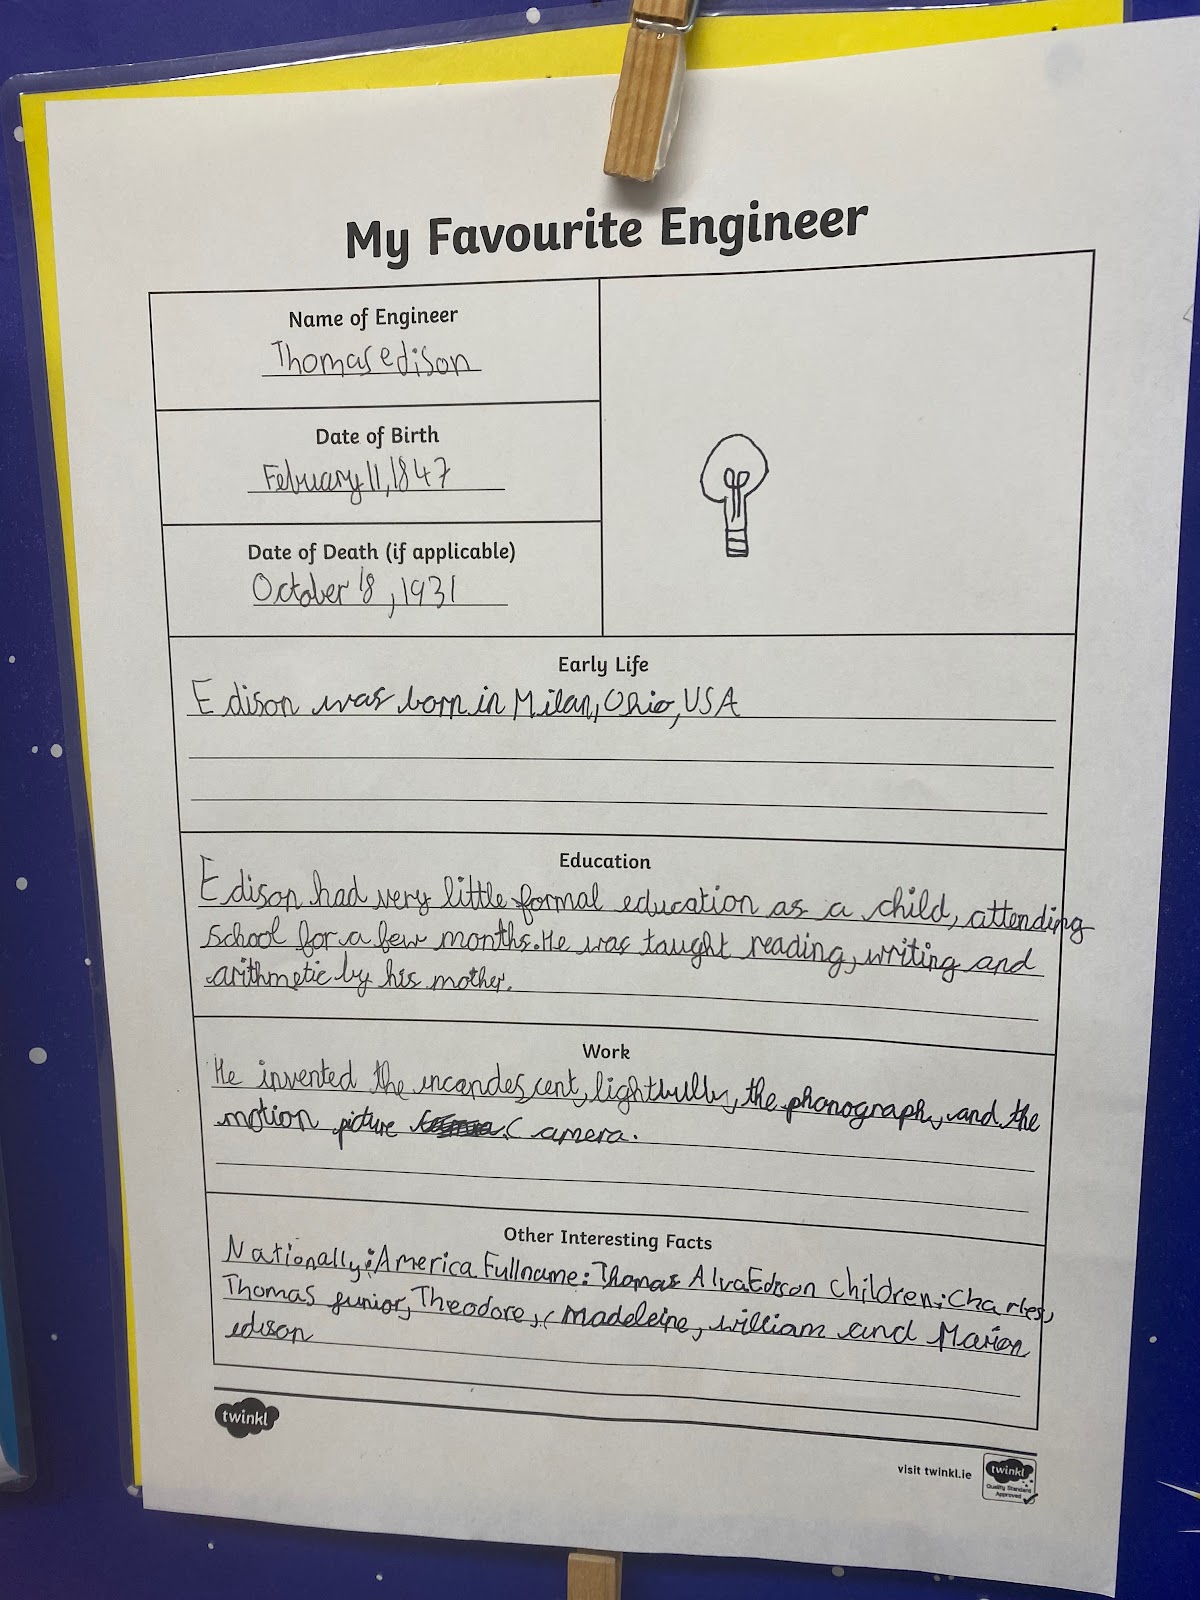 My Favourite Engineer
Name of Engineer
Thomas edison
Date of Birth
February 11, 1847
Date of Death (if applicable)
October 18, 1931
Early Life
Edison was born in Milan, Ohio, USA
Education
Edison had very little formal education as a child, attending
school for a few months. He was taught reading, writing and
arithmetic by his mother.
Work
He invented the incandescent, lightbulb, the phonograph, and the
motion picture Camera.
Other Interesting Facts
Nationally: America Fullname: Thomas Alva Edison Children: Charles,
Thomas junior, Theodore, Madeleine, william and Marion
edison
twinkl
visit twinkl.ie
twinkl
Quality Standard
Approved